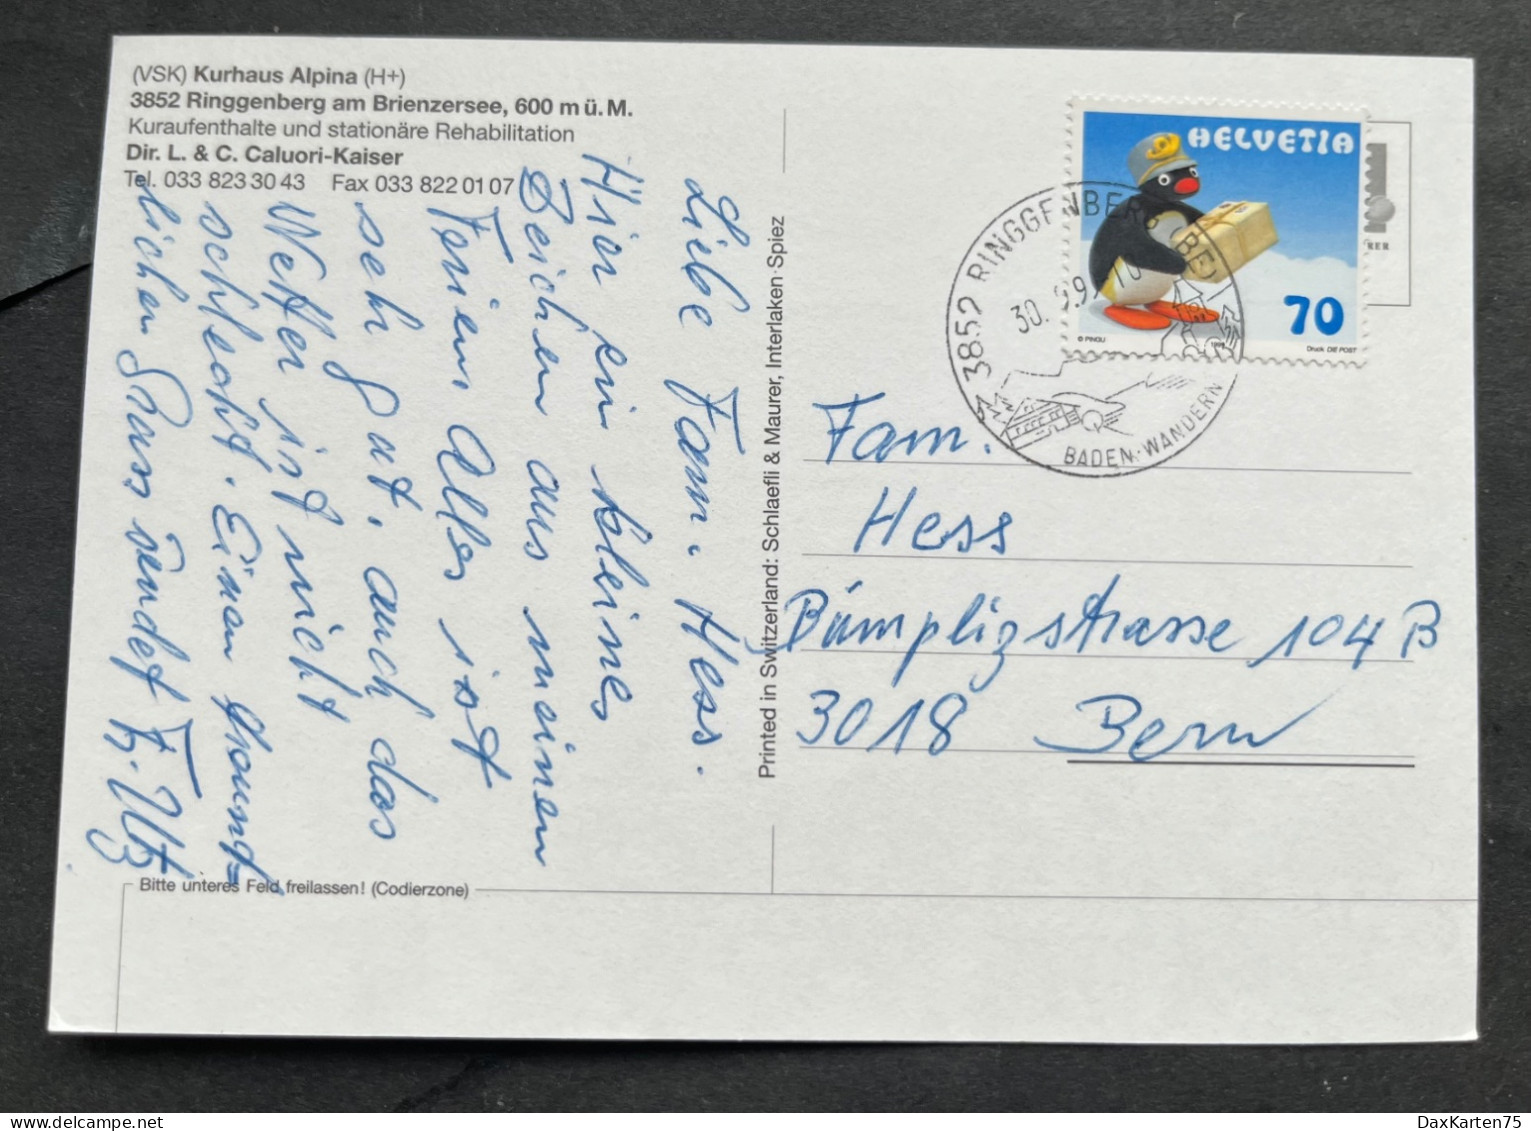 (VSK) Kurhaus Alpina (H+)
3852 Ringgenberg am Brienzersee, 600 m ü. M.
Kuraufenthalte und stationäre Rehabilitation
Dir. L. & C. Caluori-Kaiser
Tel. 033 823 30 43 Fax 033 822 01 07
Liebe Fam. Hess.
Hier ein kleines
Zeichen aus meinen
Ferien Alles ist
sehr gut, auch das
Wetter ist nicht
schlecht. Einen freund=
lichen Gruss sendet
Printed in Switzerland: Schlaefli & Maurer, Interlaken·Spiez
HELVETIA
70
© PINGU
Druck DIE POST
3852 RINGGENBERG (BE)
30. 9.9
BADEN·WANDERN
RER
Fam.
Hess
Bümplizstrasse 104 B
3018 Bern
Bitte unteres Feld freilassen! (Codierzone)
DaxKarten75